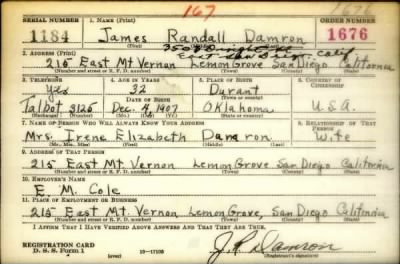 167 1676
SERIAL NUMBER 1. NAME (Print) ORDER NUMBER
1184 James Randall Damron 1676
(First) (Middle) (Last)
2. ADDRESS (Print)
215 East Mt Vernon Lemon Grove San Diego California
(Number and street or R. F. D. number) (Town) (County) (State)
3. TELEPHONE 4. AGE IN YEARS 5. PLACE OF BIRTH 6. COUNTRY OF CITIZENSHIP
Yes 32 Durant
DATE OF BIRTH (Town or county)
Talbot 3125 Dec. 4, 1907 Oklahoma U.S.A.
(Exchange) (Number) (Mo.) (Day) (Yr.) (State or country)
7. NAME OF PERSON WHO WILL ALWAYS KNOW YOUR ADDRESS 8. RELATIONSHIP OF THAT PERSON
Mrs. Irene Elizabeth Damron Wife
(Mr., Mrs., Miss) (First) (Middle) (Last)
9. ADDRESS OF THAT PERSON
215 East Mt. Vernon Lemon Grove San Diego California
(Number and street or R. F. D. number) (Town) (County) (State)
10. EMPLOYER'S NAME
E. M. Cole
11. PLACE OF EMPLOYMENT OR BUSINESS
215 East Mt. Vernon, Lemon Grove, San Diego California
(Number and street or R. F. D. number) (Town) (County) (State)
I AFFIRM THAT I HAVE VERIFIED ABOVE ANSWERS AND THAT THEY ARE TRUE.
REGISTRATION CARD
D. S. S. Form 1 (over) 16—17105 J. R. Damron
(Registrant's signature)